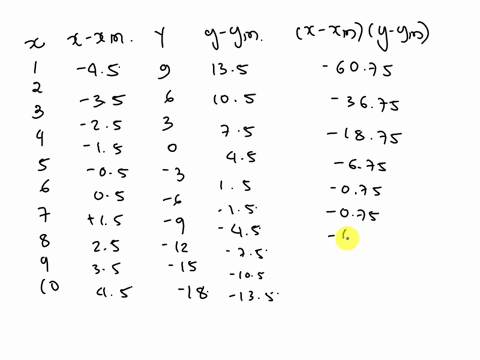 x x-xm. Y y-ym. (x-xm)(y-ym)
1 -4.5 9 13.5 -60.75
2 -3.5 6 10.5 -36.75
3 -2.5 3 7.5 -18.75
4 -1.5 0 4.5 -6.75
5 -0.5 -3 1.5 -0.75
6 0.5 -6 -1.5 -0.75
7 +1.5 -9 -4.5 -6.
8 2.5 -12 -7.5
9 3.5 -15 -10.5
10 4.5 -18 -13.5